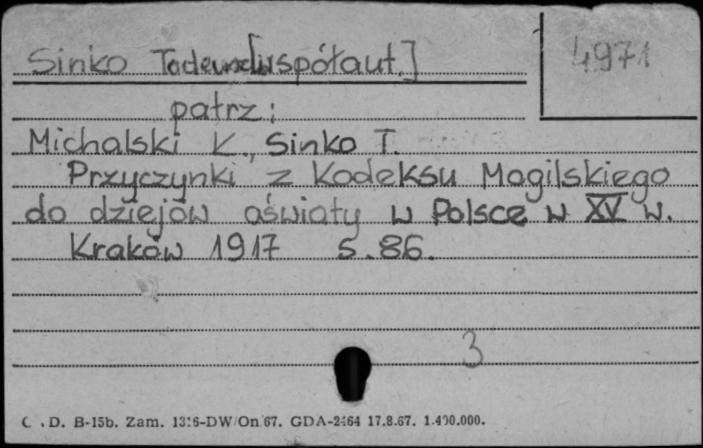 Sinko Tadeusz [współaut.]
4971
patrz:
Michalski K., Sinko T.
Przyczynki z Kodeksu Mogilskiego
do dziejów oświaty w Polsce w XV w.
Kraków 1917 s. 86.
3
C.D. B-15b. Zam. 1316-DW/On/67. GDA-2464 17.8.67. 1.400.000.